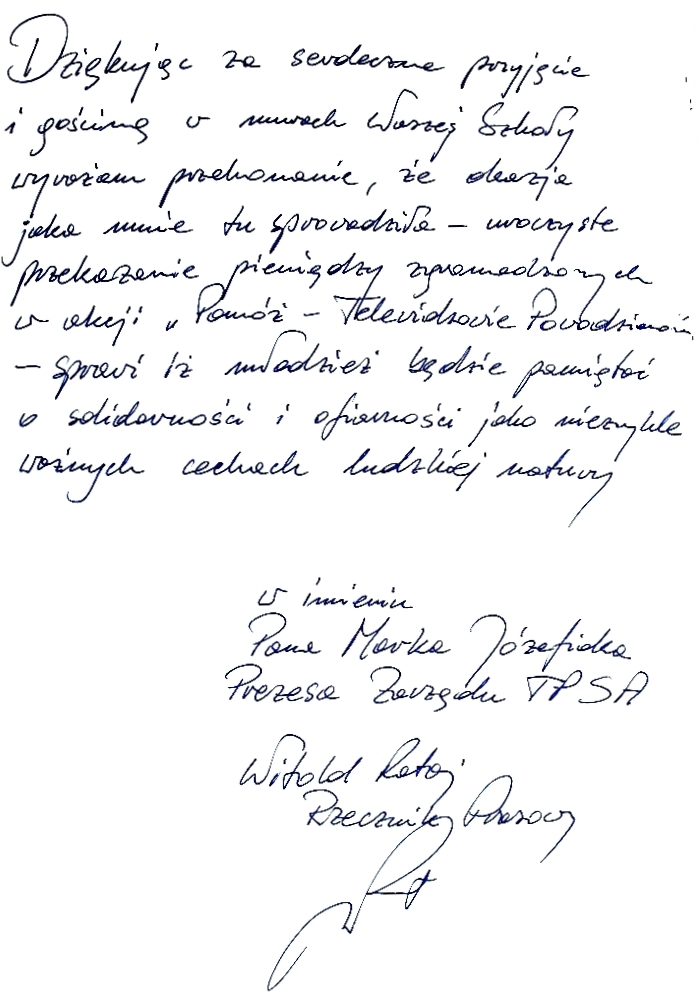 Dziękując za serdeczne przyjęcie
i gościnę w murach Waszej Szkoły
wyrażam przekonanie, że okazja
jaka mnie tu sprowadziła – uroczyste
przekazanie pieniędzy zgromadzonych
w akcji „Pomóż – Telewidzowie Powodzianom
– sprawi iż młodzież będzie pamiętać
o solidarności i ofiarności jako niezwykle
ważnych cechach ludzkiej natury
w imieniu
Pana Marka Józefiaka
Prezesa Zarządu TP SA
Witold Rataj
Rzecznik Prasowy